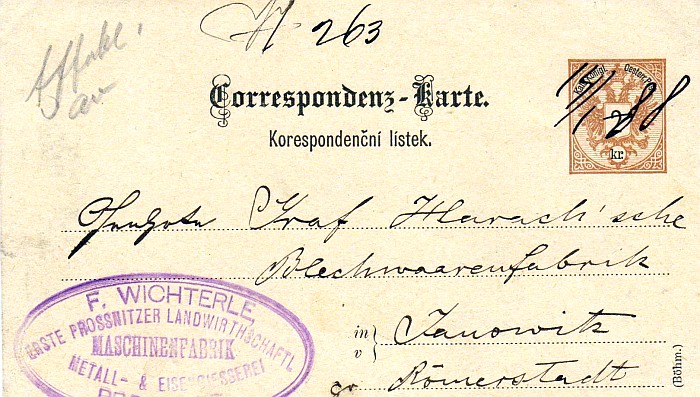 N 263
Correspondenz-Karte.
Korespondenční lístek.
Kais. Königl. Oesterr. Post
2
kr.
18/1 88
Graf Harach'sche
Blechwaarenfabrik
in
v
Janowitz
Römerstadt
(Böhm.)
F. WICHTERLE
ERSTE PROSSNITZER LANDWIRTHSCHAFTL.
MASCHINENFABRIK
METALL- & EISENGIESSEREI